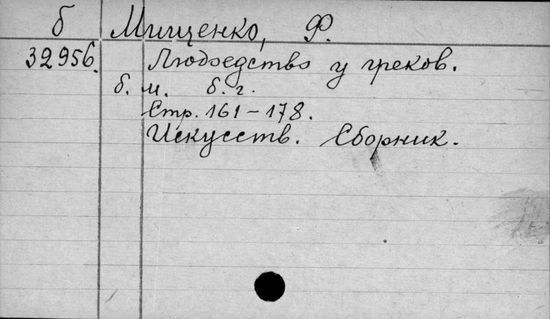 б Мищенко, Ф.
32956. Людоедство у греков.
б. м. б. г.
Стр. 161-178.
Искусств. Сборник.